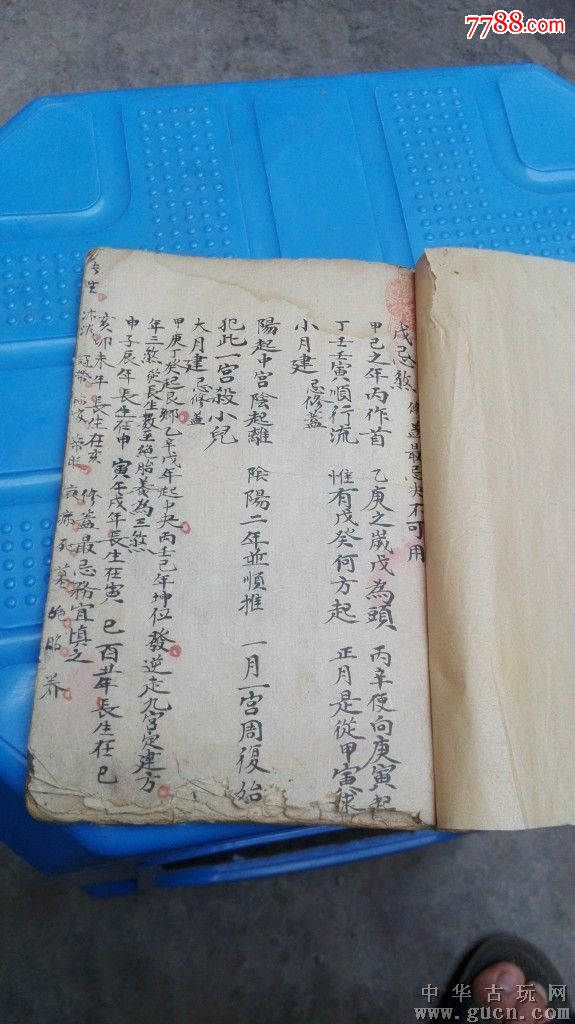 7788.com
戊忌煞 修蓋最忌決不可用
甲己之年丙作首 乙庚之歲戊為頭 丙辛便向庚寅起
丁壬壬寅順行流 惟有戊癸何方起 正月是從甲寅
小月建 忌修蓋
陽起中宮陰起離 陰陽二年並順推 一月一宮周復始
犯此一宮殺小兒
大月建 忌修蓋
甲庚丁癸起艮鄉乙辛戊年起中央丙壬己年坤位發逆走九宮定建方
年三煞從長生數至絕胎養為三煞
申子辰年長生在申 寅午戌年長生在寅 巳酉丑年長生在巳
亥卯未年長生在亥 修蓋最忌務宜慎之
長生 沐浴 冠帶 病 死 墓 絕 胎 養
中华古玩网
www.gucn.com